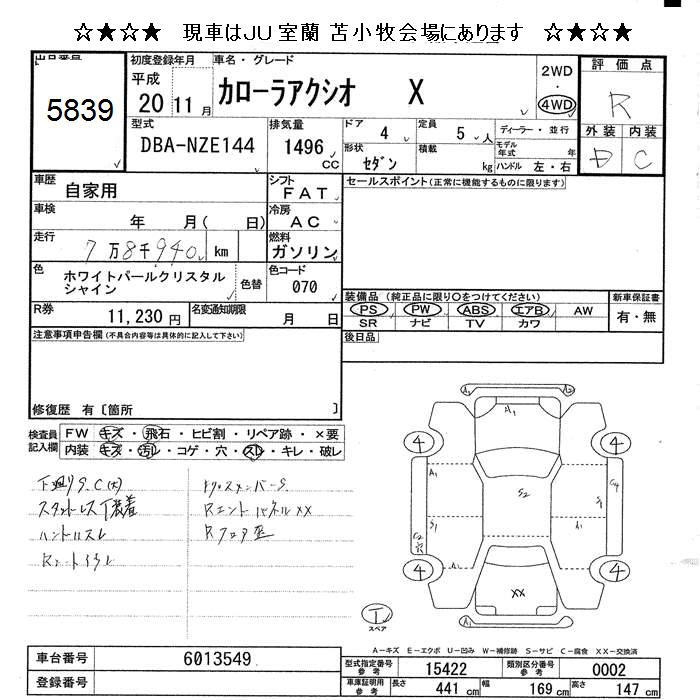 ☆★☆★ 現車はJU室蘭 苫小牧会場にあります ☆★☆★
出品番号
5839
初度登録年月
平成
20 11月
車名・グレード
カローラアクシオ X
2WD
・
4WD
評価点
R
外装 内装
D C
型式
DBA-NZE144
排気量
1496
CC
ドア
4
定員
5 人
形状
セダン
積載
kg
ディーラー・並行
モデル年式 年
ハンドル 左・右
車歴
自家用
シフト
FAT
セールスポイント(正常に機能するものに限ります)
車検
年 月( 日)
冷房
AC
走行
7万8千940 km
燃料
ガソリン
色
ホワイトパールクリスタル
シャイン
色替
色コード
070
R券
11,230 円
名変通知期限
月 日
装備品(純正品に限り○をつけてください)
PS PW ABS エアB AW
SR ナビ TV カワ
新車保証書
有・無
注意事項申告欄(不具合内容等は具体的に記入して下さい)
後日品
修復歴 有〔箇所 〕
検査員
記入欄
FW キズ・飛石・ヒビ割・リペア跡・×要
内装 キズ・汚レ・コゲ・穴・スレ・キレ・破レ
下廻りS.C(大)
スタットレス下装着
ハンドルスレ
クロスメンバーS
Rエンドパネル××
Rフロア歪
A1
A2
4
4
A1
S2
S1
C4
S1
A1
C2
A1
4
4
××
T
スペア
A-キズ E-エクボ U-凹み W-補修跡 S-サビ C-腐食 XX-交換済
車台番号
6013549
登録番号
型式指定番号
参考
15422
類別区分番号
参考
0002
車庫証明用
参考
長さ
441 cm
幅
169 cm
高さ
147 cm